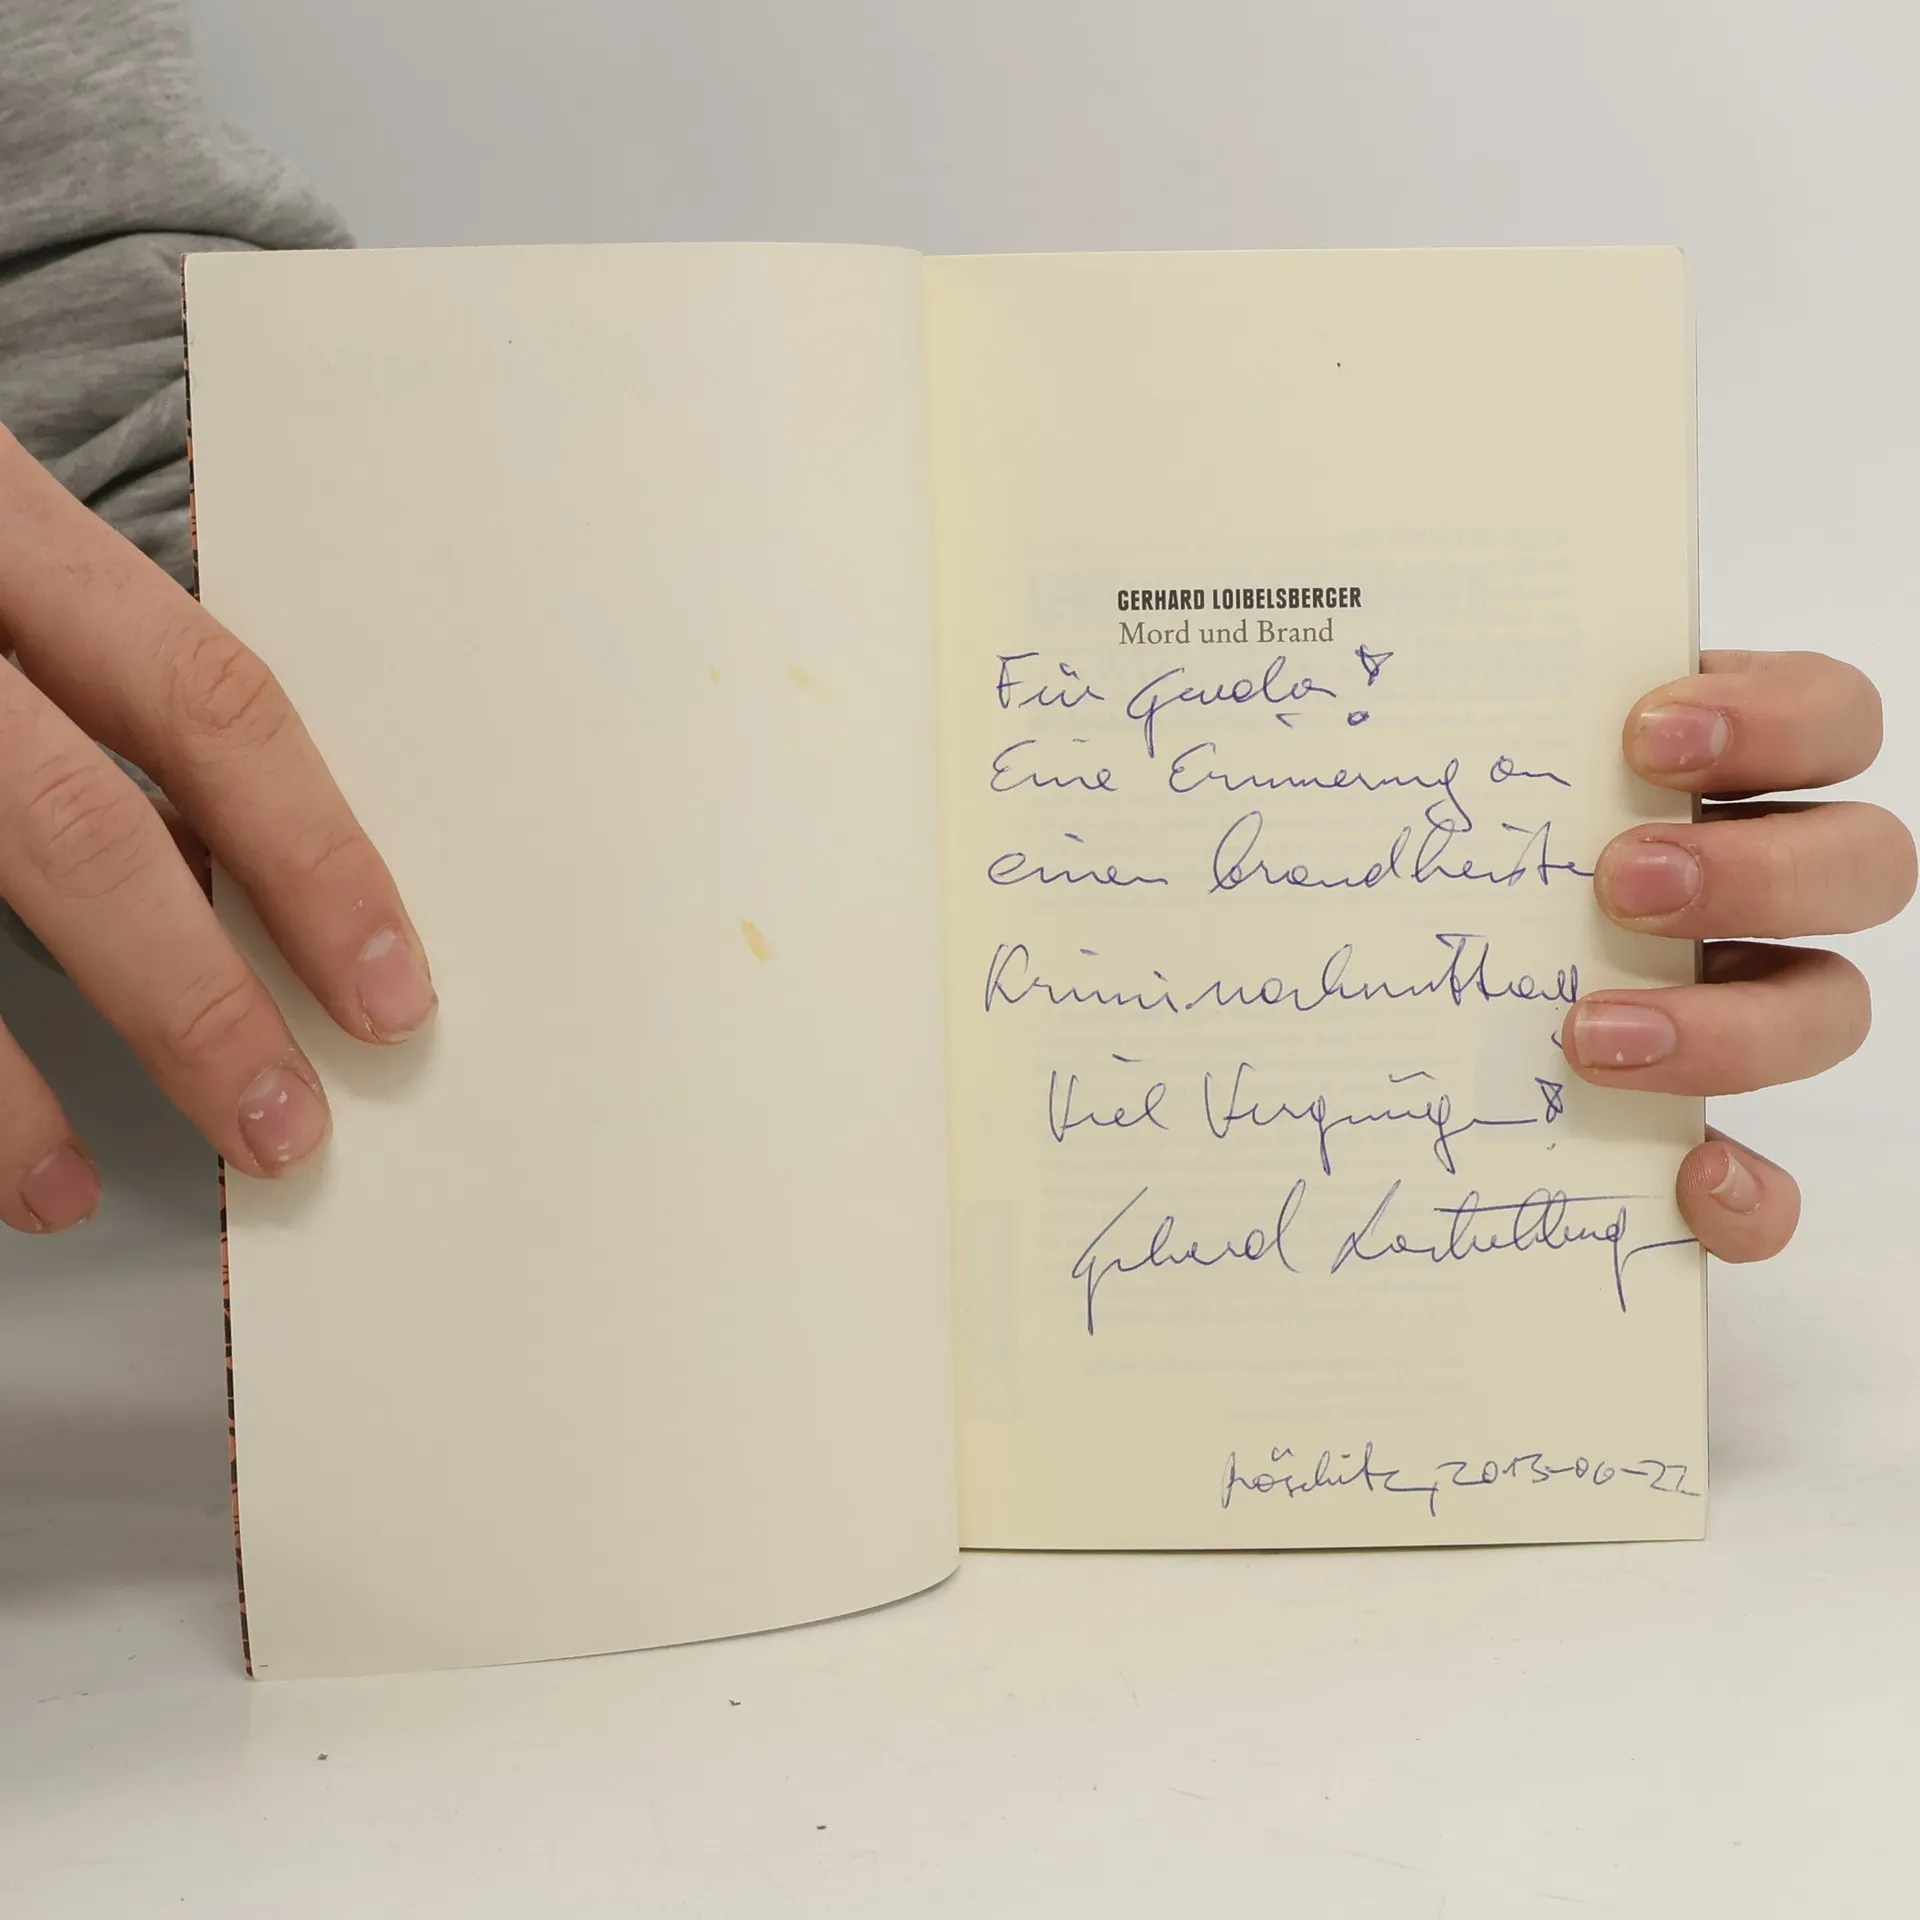 GERHARD LOIBELSBERGER
Mord und Brand
Für Gerda!
Eine Erinnerung an
einen brandheißen
Kriminachmittag
Viel Vergnügen!
Gerhard Loibelsberger
Röschitz, 2013-06-22